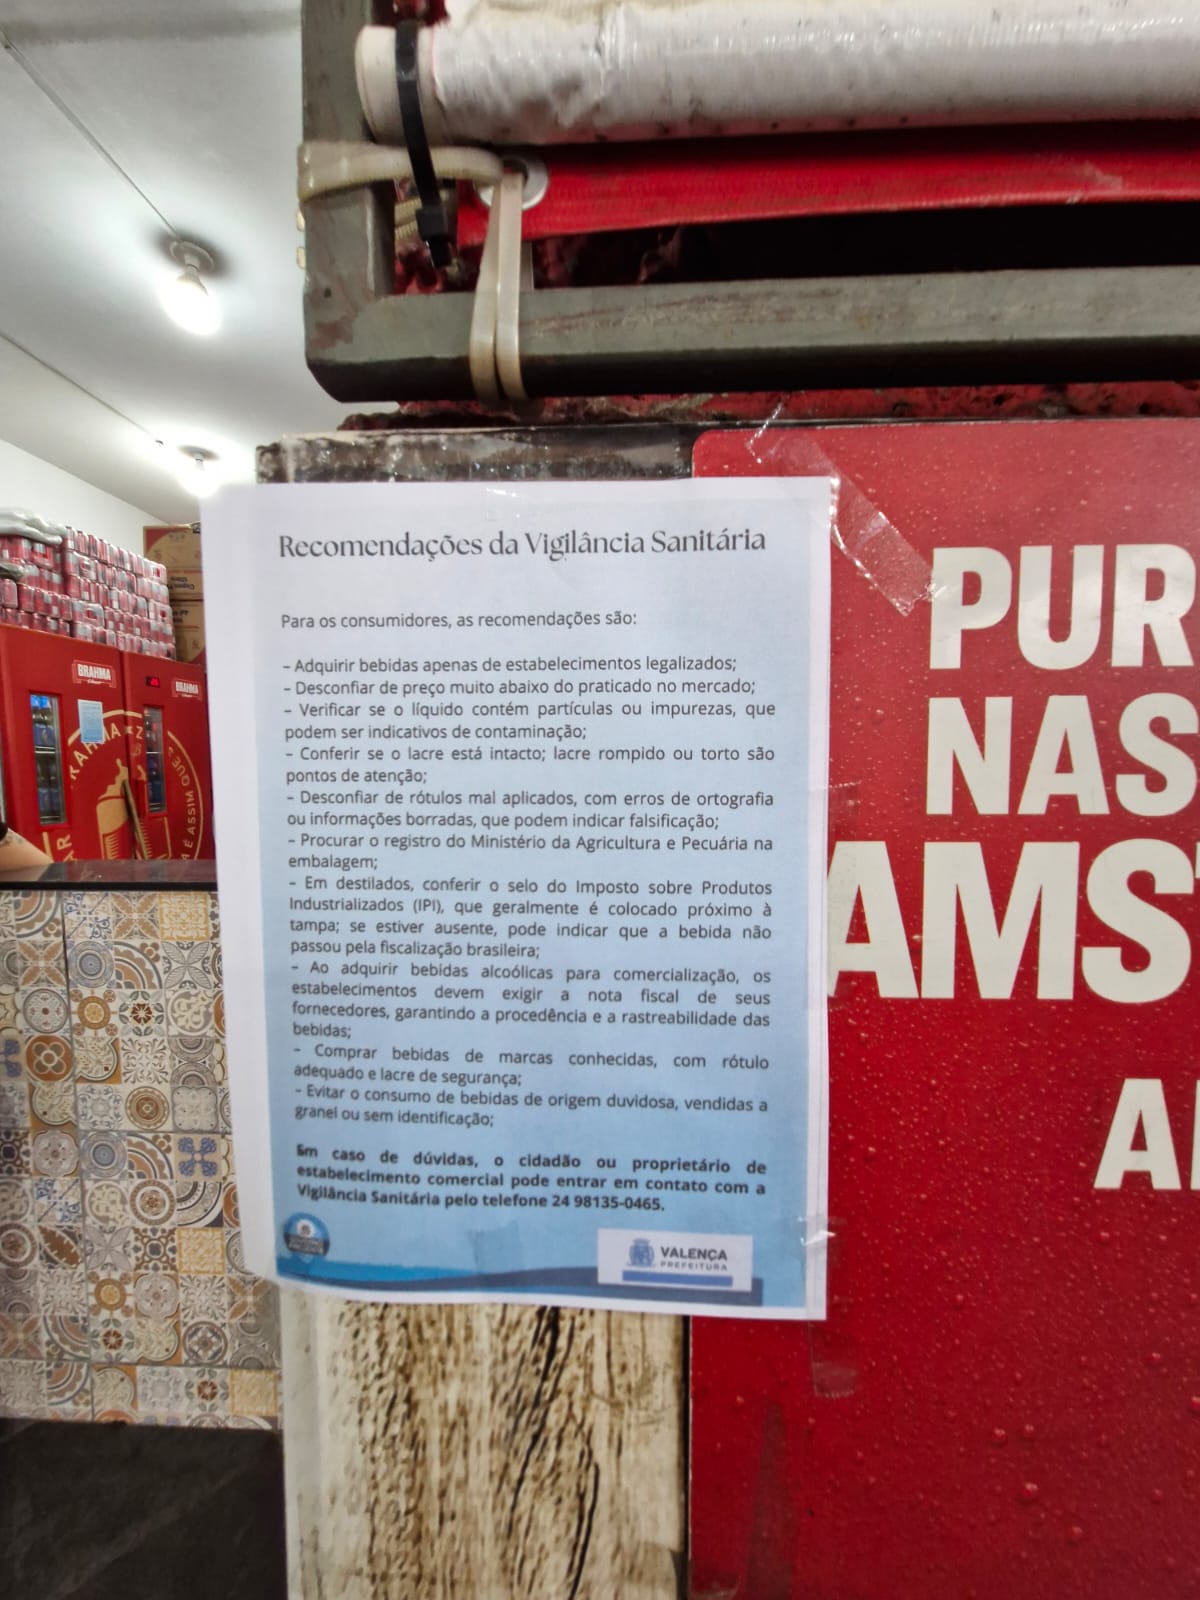 Recomendações da Vigilância Sanitária
Para os consumidores, as recomendações são:
– Adquirir bebidas apenas de estabelecimentos legalizados;
– Desconfiar de preço muito abaixo do praticado no mercado;
– Verificar se o líquido contém partículas ou impurezas, que
podem ser indicativos de contaminação;
– Conferir se o lacre está intacto; lacre rompido ou torto são
pontos de atenção;
– Desconfiar de rótulos mal aplicados, com erros de ortografia
ou informações borradas, que podem indicar falsificação;
– Procurar o registro do Ministério da Agricultura e Pecuária na
embalagem;
– Em destilados, conferir o selo do Imposto sobre Produtos
Industrializados (IPI), que geralmente é colocado próximo à
tampa; se estiver ausente, pode indicar que a bebida não
passou pela fiscalização brasileira;
– Ao adquirir bebidas alcoólicas para comercialização, os
estabelecimentos devem exigir a nota fiscal de seus
fornecedores, garantindo a procedência e a rastreabilidade das
bebidas;
– Comprar bebidas de marcas conhecidas, com rótulo
adequado e lacre de segurança;
– Evitar o consumo de bebidas de origem duvidosa, vendidas a
granel ou sem identificação;
Em caso de dúvidas, o cidadão ou proprietário de
estabelecimento comercial pode entrar em contato com a
Vigilância Sanitária pelo telefone 24 98135-0465.
VALENÇA
PREFEITURA
PUR
NAS
AMS
A
BRAHMA
BRAHMA
É ASSIM QUE